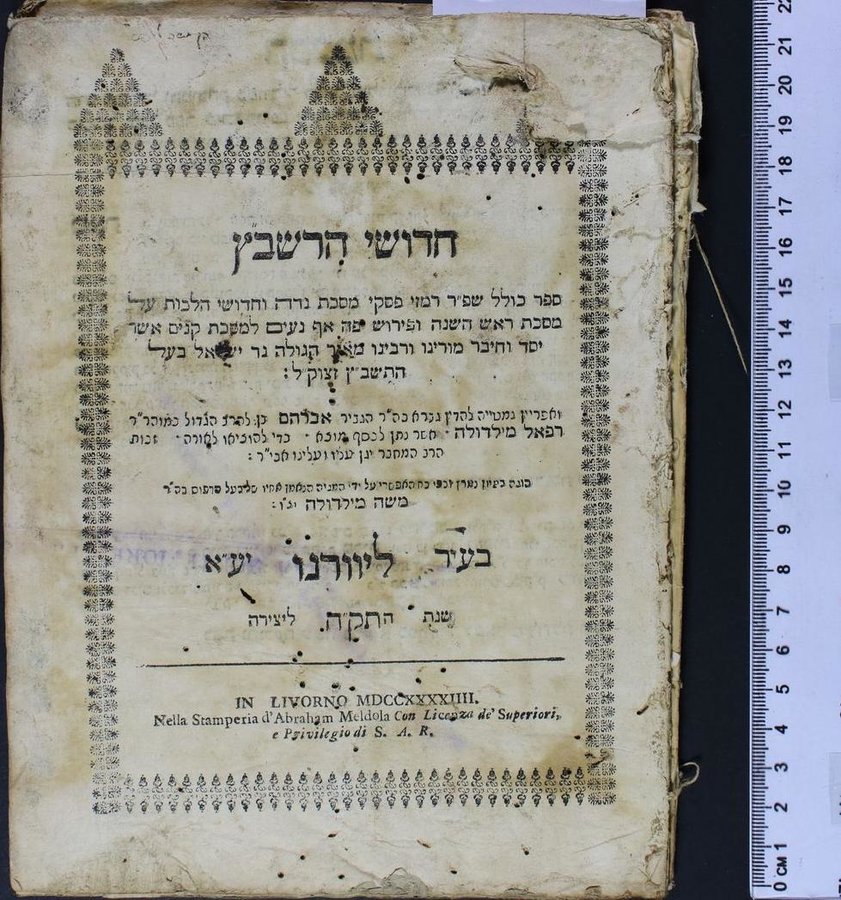 חדושי הרשבץ
ספר כולל שפ״ר רמזי פסקי מסכת נדה וחדושי הלכות על
מסכת ראש השנה ופירוש יפה אף נעים למסכת קנים אשר
יסד וחיבר מורינו ורבינו מאור הגולה נר ישראל בעל
התשב״ץ זצוק״ל:
ואפריון נמטייה להדין גברא כה״ר הגביר אברהם בן להרב הגדול כמוהר״ר
רפאל מילדולה אשר נתן לכסף מוצא כדי להוציאו לאורה זכות
הרב המחבר יגן עליו ועלינו אכי״ר:
על ידי
משה מילדולה יצ״ו:
בעיר ליוורנו יע״א
שנת התק״ה ליצירה
IN LIVORNO MDCCXXXXIIII.
Nella Stamperia d'Abraham Meldola Con Licenza de' Superiori,
e Privilegio di S. A. R.
22
21
20
19
18
17
16
15
14
13
12
11
10
9
8
7
6
5
4
3
2
1
0 CM